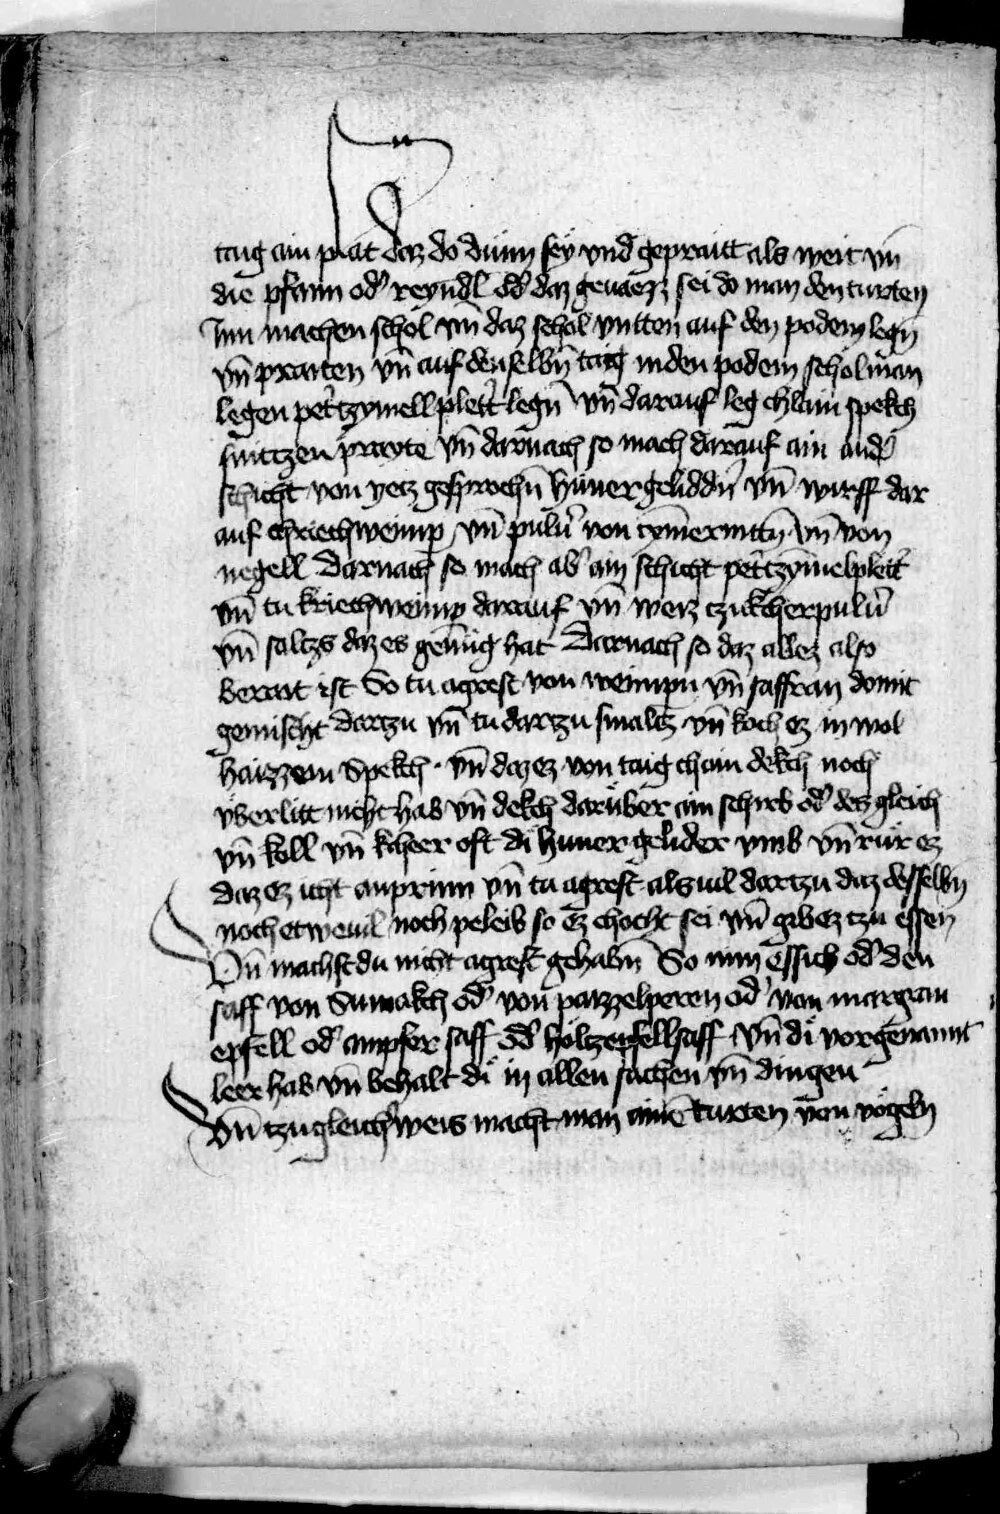 taig ain plat daz do dünn sey vnd gepraitt als weit vn̄
die pfann od' reyndl od' daz geuaezz sei do man den turten
Inn machen schol vn̄ daz schol vntten auf den podem legn̄
vn̄ praiten vn̄ auf denselbn̄ taig in den podem schol man
legen pet'tzymell plett' legn̄ vn̄ darauf leg chlain spekch
snittzen prayte vn̄ darnach so mach darauf ain and'
schicht von yetz gesprochn̄ hüner geliddn̄ vn̄ wirff dar
auf chriechweinp vn̄ pulu' von cym̄erinttn̄ vn̄ von
negell Darnach so mach ab' ain schicht pet'tzym̄elplett'
vn̄ tu kriechweinp darauf vn̄ weiz tzukcherpulu'
vn̄ saltzs daz es genūg hat Darnach so daz allez also
berait ist So tu agrest von weinpn̄ vn̄ saffran domit
gemischt dartzu vn̄ tu dartzu smaltz vn̄ koch ez in wol
haizzem Spekch · vn̄ daz ez von taig chain dekch noch
vberlitt nicht hab vn̄ dekch darüber ain schirb od' des gleich
vn̄ koll vn̄ kcheer oft di hüner gelider vmb vn̄ rür ez
daz ez icht anprinn vn̄ tu agrest als vil dartzu daz desselbn̄
noch etweuil noch peleib so ez chocht sei vn̄ gib ez tzu essen
Vn̄ machst du nicht agrest gehabn̄ So nim essich od' den
saff von Sumakch od' von paizzelperen od' von margran
epfell od' ampfer saff od' holtzepfellsaff Vn̄ di vorgenannt
leer hab vn̄ behalt di in allen sachen vn̄ dingen
Vn̄ tzu gleich'weis macht man ainē turten von vögeln